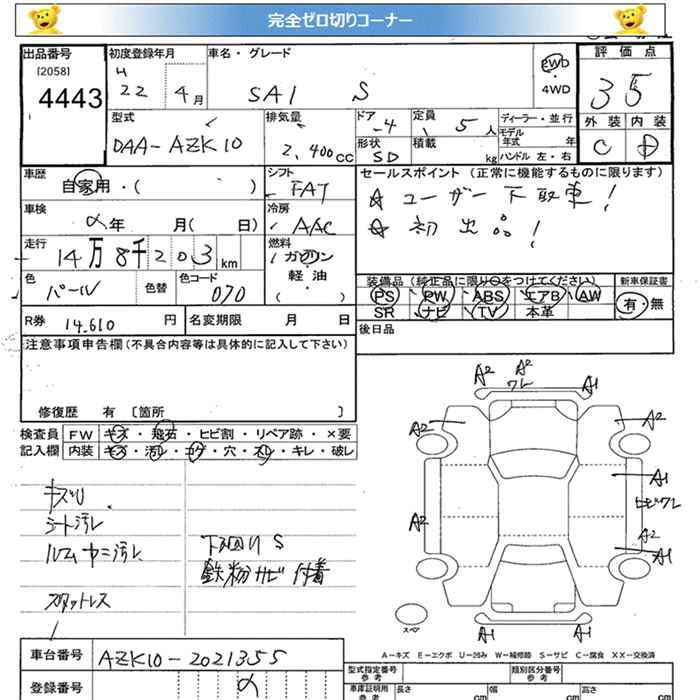 完全ゼロ切りコーナー
出品番号
[2058]
4443
初度登録年月
H
22 4月
車名・グレード
SAI S
2WD
・
4WD
評価点
3 5
外装 内装
C D
型式
DAA-AZK10
排気量
2,400cc
ドア
4
定員
5人
形状
SD
積載
kg
ディーラー・並行
モデル
年式 年
ハンドル 左・右
車歴
自家用・( )
シフト
FAT
車検
年 月( 日)
冷房
AAC
走行
14万8千203km
燃料
ガソリン
軽油
・
( )
色
パール
色替
色コード
070
R券 14,610 円
名変期限 月 日
セールスポイント(正常に機能するものに限ります)
☆ユーザー下取車!
☆初出品!
装備品(純正品に限り○をつけてください)
新車保証書
PS PW ABS エアB AW
SR ナビ TV 本革
有・無
後日品
注意事項申告欄(不具合内容等は具体的に記入して下さい)
修復歴 有〔箇所 〕
検査員
記入欄
FW キズ・飛石・ヒビ割・リペア跡・×要
内装 キズ・汚レ・コゲ・穴・スレ・キレ・破レ
キズU
シート汚レ
ルームヤニ汚レ
スタットレス
下廻りS
鉄粉サビ付着
A2 A2 A1
ワレ
A2 A2
A1
ヒビワレ
A2 A2
A1
スペア
A1 A1
A-キズ E-エクボ U-凹み W-補修跡 S-サビ C-腐食 XX-交換済
車台番号 AZK10-2021355
登録番号
型式指定番号
参考
類別区分番号
参考
車庫証明用
参考
長さ cm 幅 cm 高さ cm